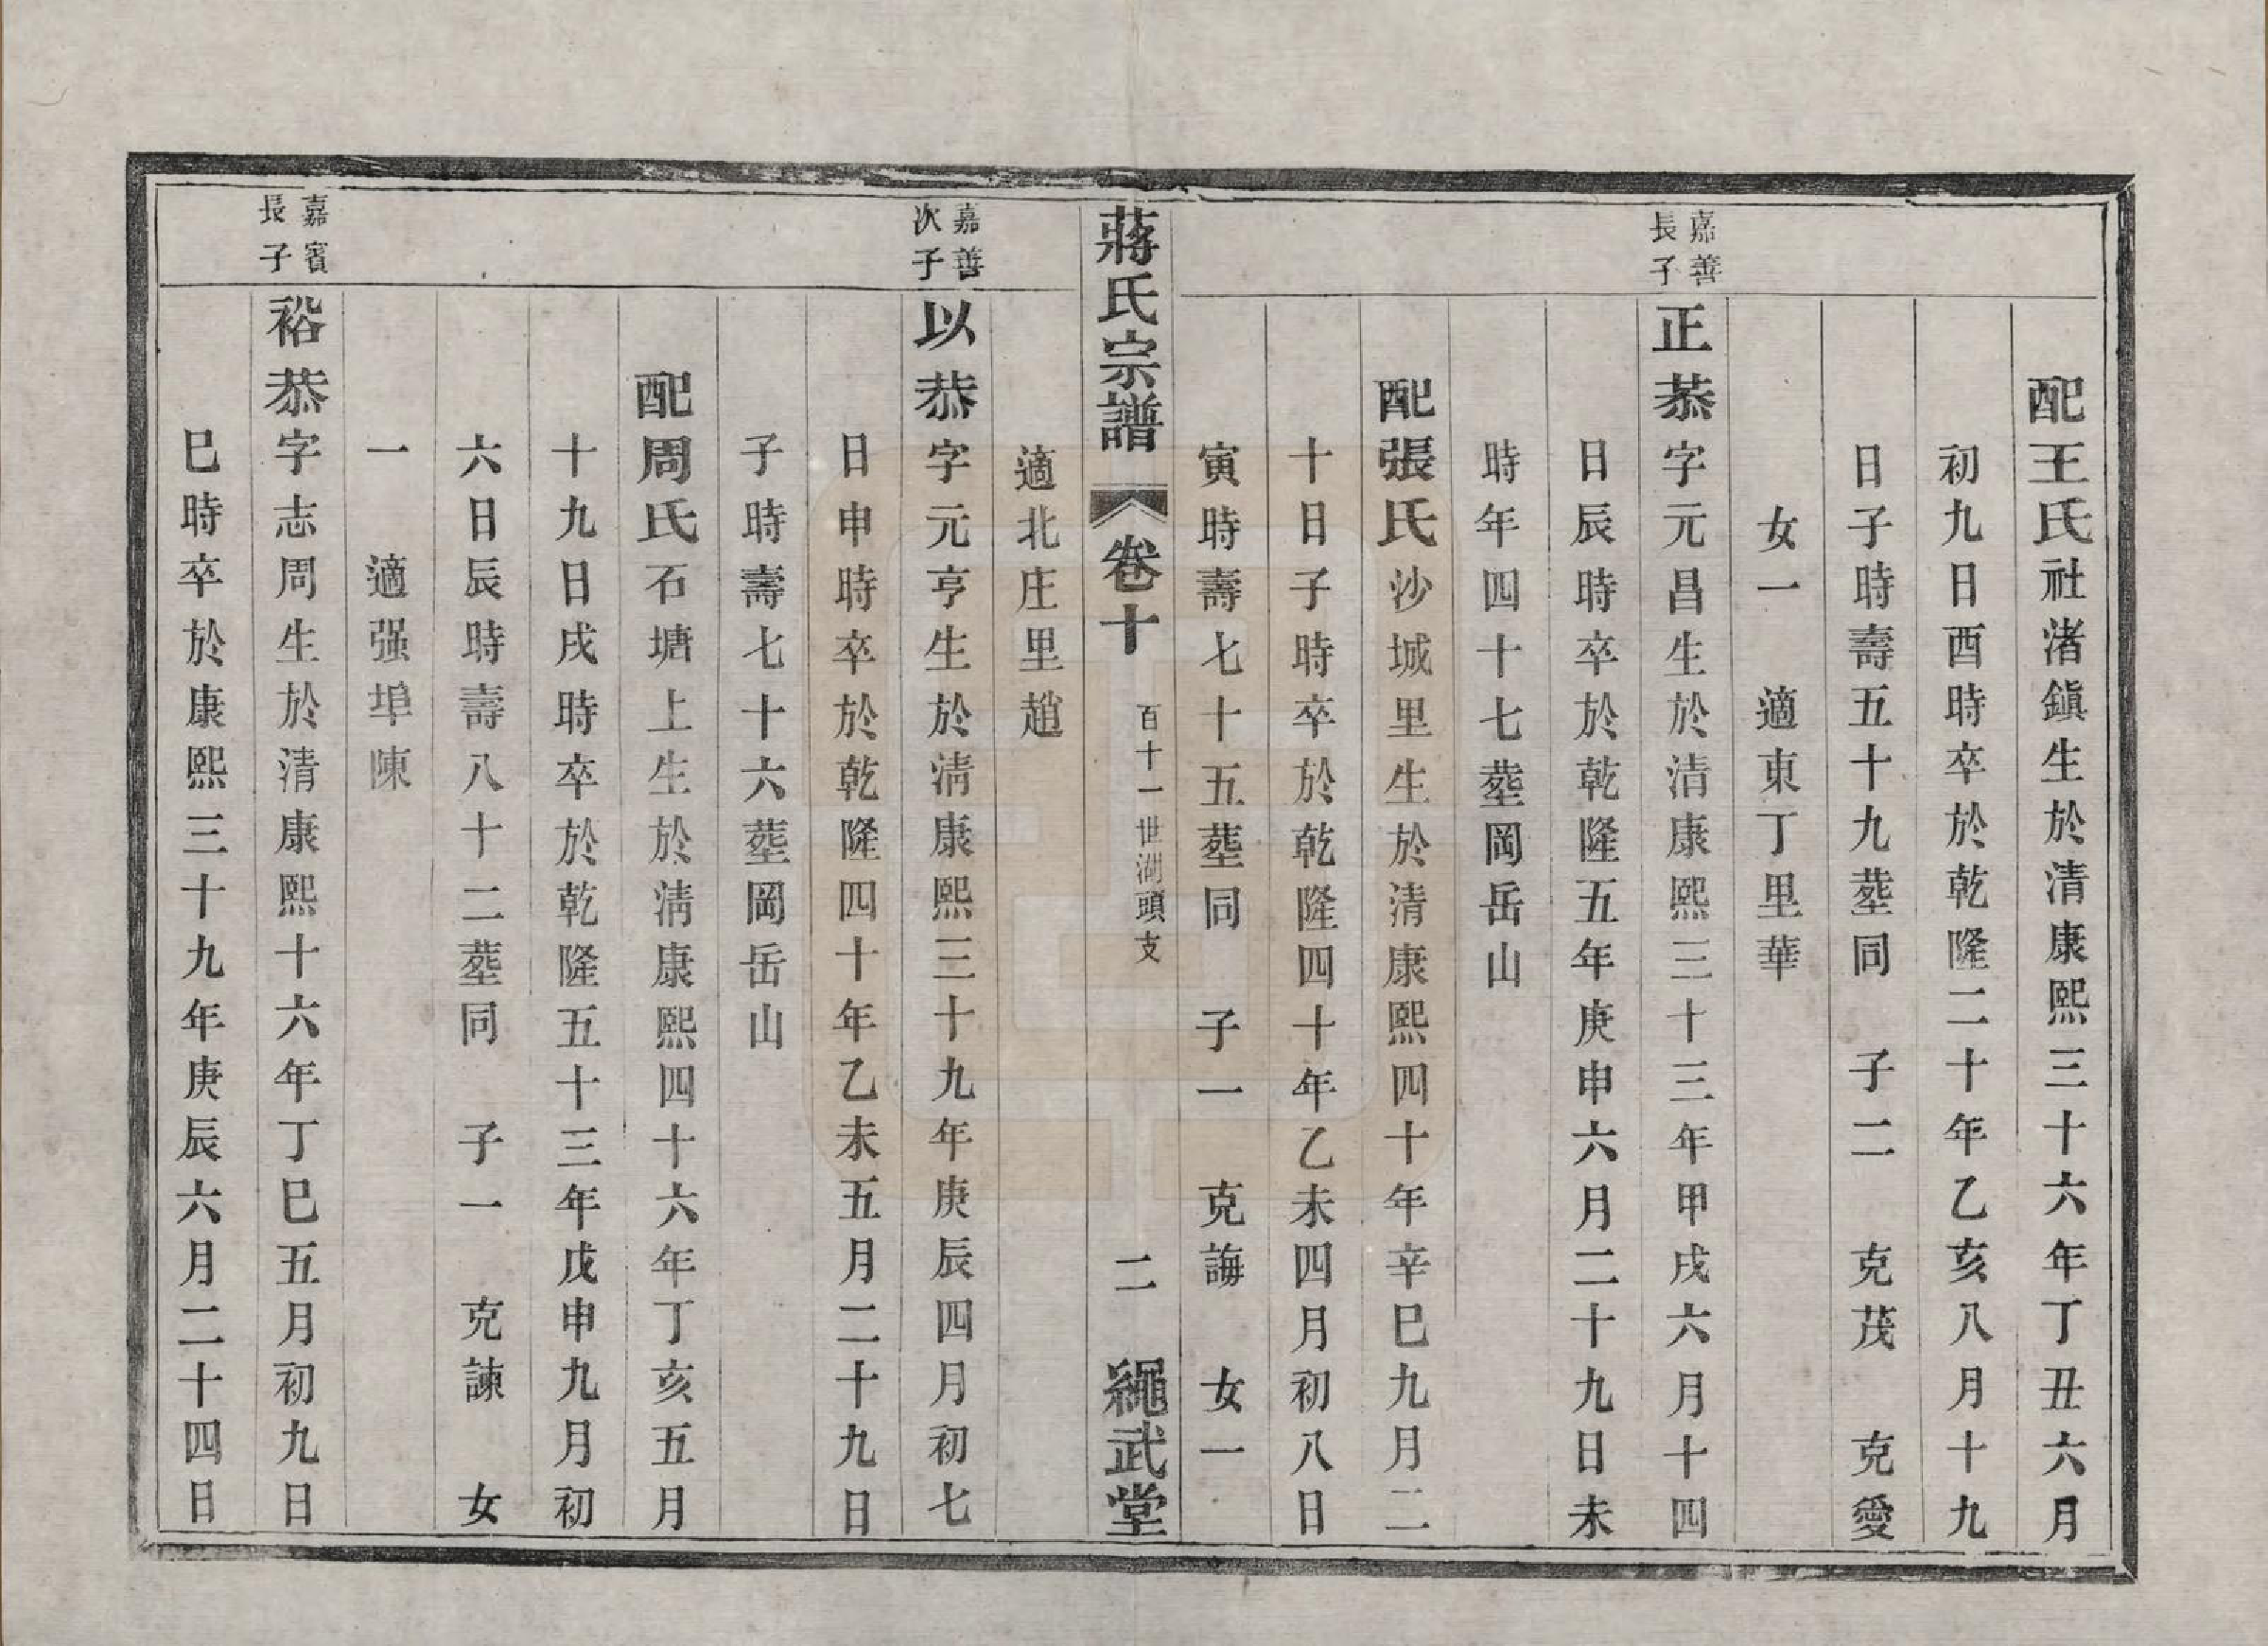 配王氏社渚鎮生於清康熙三十六年丁丑六月
初九日酉時卒於乾隆二十年乙亥八月十九
日子時壽五十九塟同　子二　克茂　克愛
女一　適東丁里華
嘉善
長子
正恭字元昌生於清康熙三十三年甲戌六月十四
日辰時卒於乾隆五年庚申六月二十九日未
時年四十七塟岡岳山
配張氏沙城里生於清康熙四十年辛巳九月二
十日子時卒於乾隆四十年乙未四月初八日
寅時壽七十五塟同　子一　克誨　女一
蔣氏宗譜　卷十　百十一世湖頭支　二　繩武堂
適北庄里趙
嘉善
次子
以恭字元亨生於淸康熙三十九年庚辰四月初七
日申時卒於乾隆四十年乙未五月二十九日
子時壽七十六塟岡岳山
配周氏石塘上生於淸康熙四十六年丁亥五月
十九日戌時卒於乾隆五十三年戊申九月初
六日辰時壽八十二塟同　子一　克諫　女
一　適强埠陳
嘉賓
長子
裕恭字志周生於清康熙十六年丁巳五月初九日
巳時卒於康熙三十九年庚辰六月二十四日